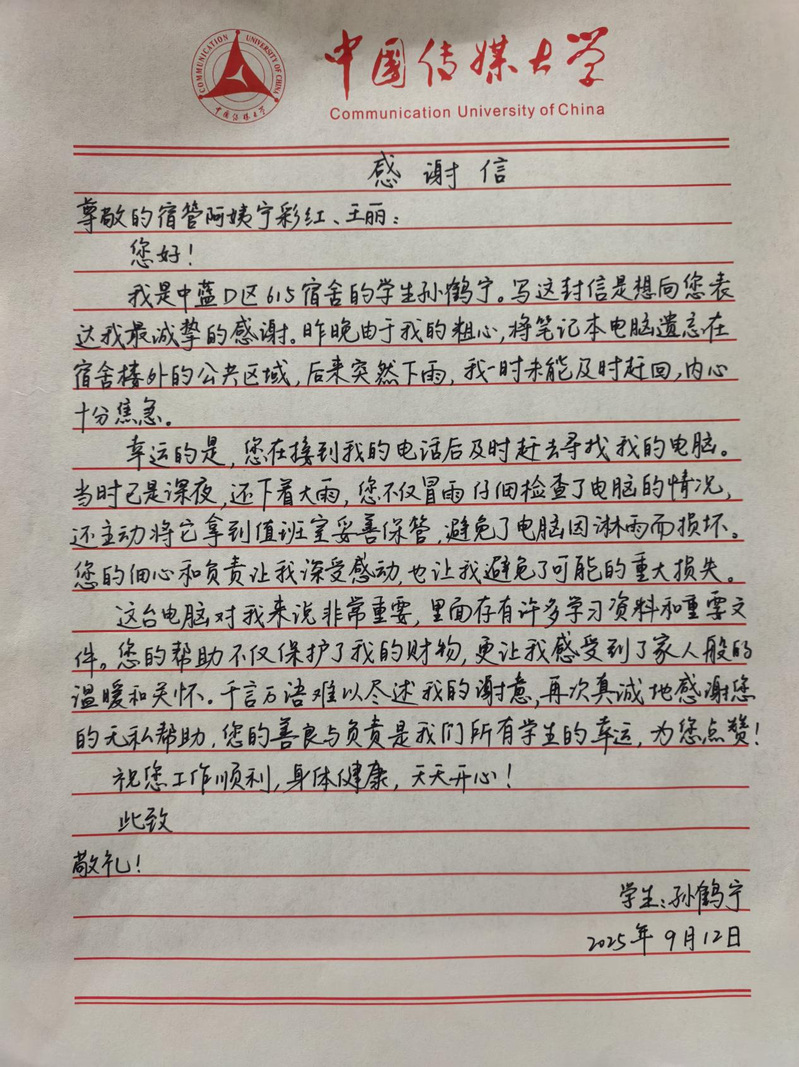 COMMUNICATION UNIVERSITY OF CHINA
中国传媒大学
中国传媒大学
Communication University of China
感谢信
尊敬的宿管阿姨宁彩红、王丽：
您好！
我是中蓝D区615宿舍的学生孙鹤宁。写这封信是想向您表
达我最诚挚的感谢。昨晚由于我的粗心，将笔记本电脑遗忘在
宿舍楼外的公共区域，后来突然下雨，我一时未能及时赶回，内心
十分焦急。
幸运的是，您在接到我的电话后及时赶去寻找我的电脑。
当时已是深夜，还下着大雨，您不仅冒雨仔细检查了电脑的情况，
还主动将它拿到值班室妥善保管，避免了电脑因淋雨而损坏。
您的细心和负责让我深受感动，也让我避免了可能的重大损失。
这台电脑对我来说非常重要，里面存有许多学习资料和重要文
件。您的帮助不仅保护了我的财物，更让我感受到了家人般的
温暖和关怀。千言万语难以尽述我的谢意，再次真诚地感谢您
的无私帮助，您的善良与负责是我们所有学生的幸运，为您点赞！
祝您工作顺利，身体健康，天天开心！
此致
敬礼！
学生：孙鹤宁
2025年9月12日